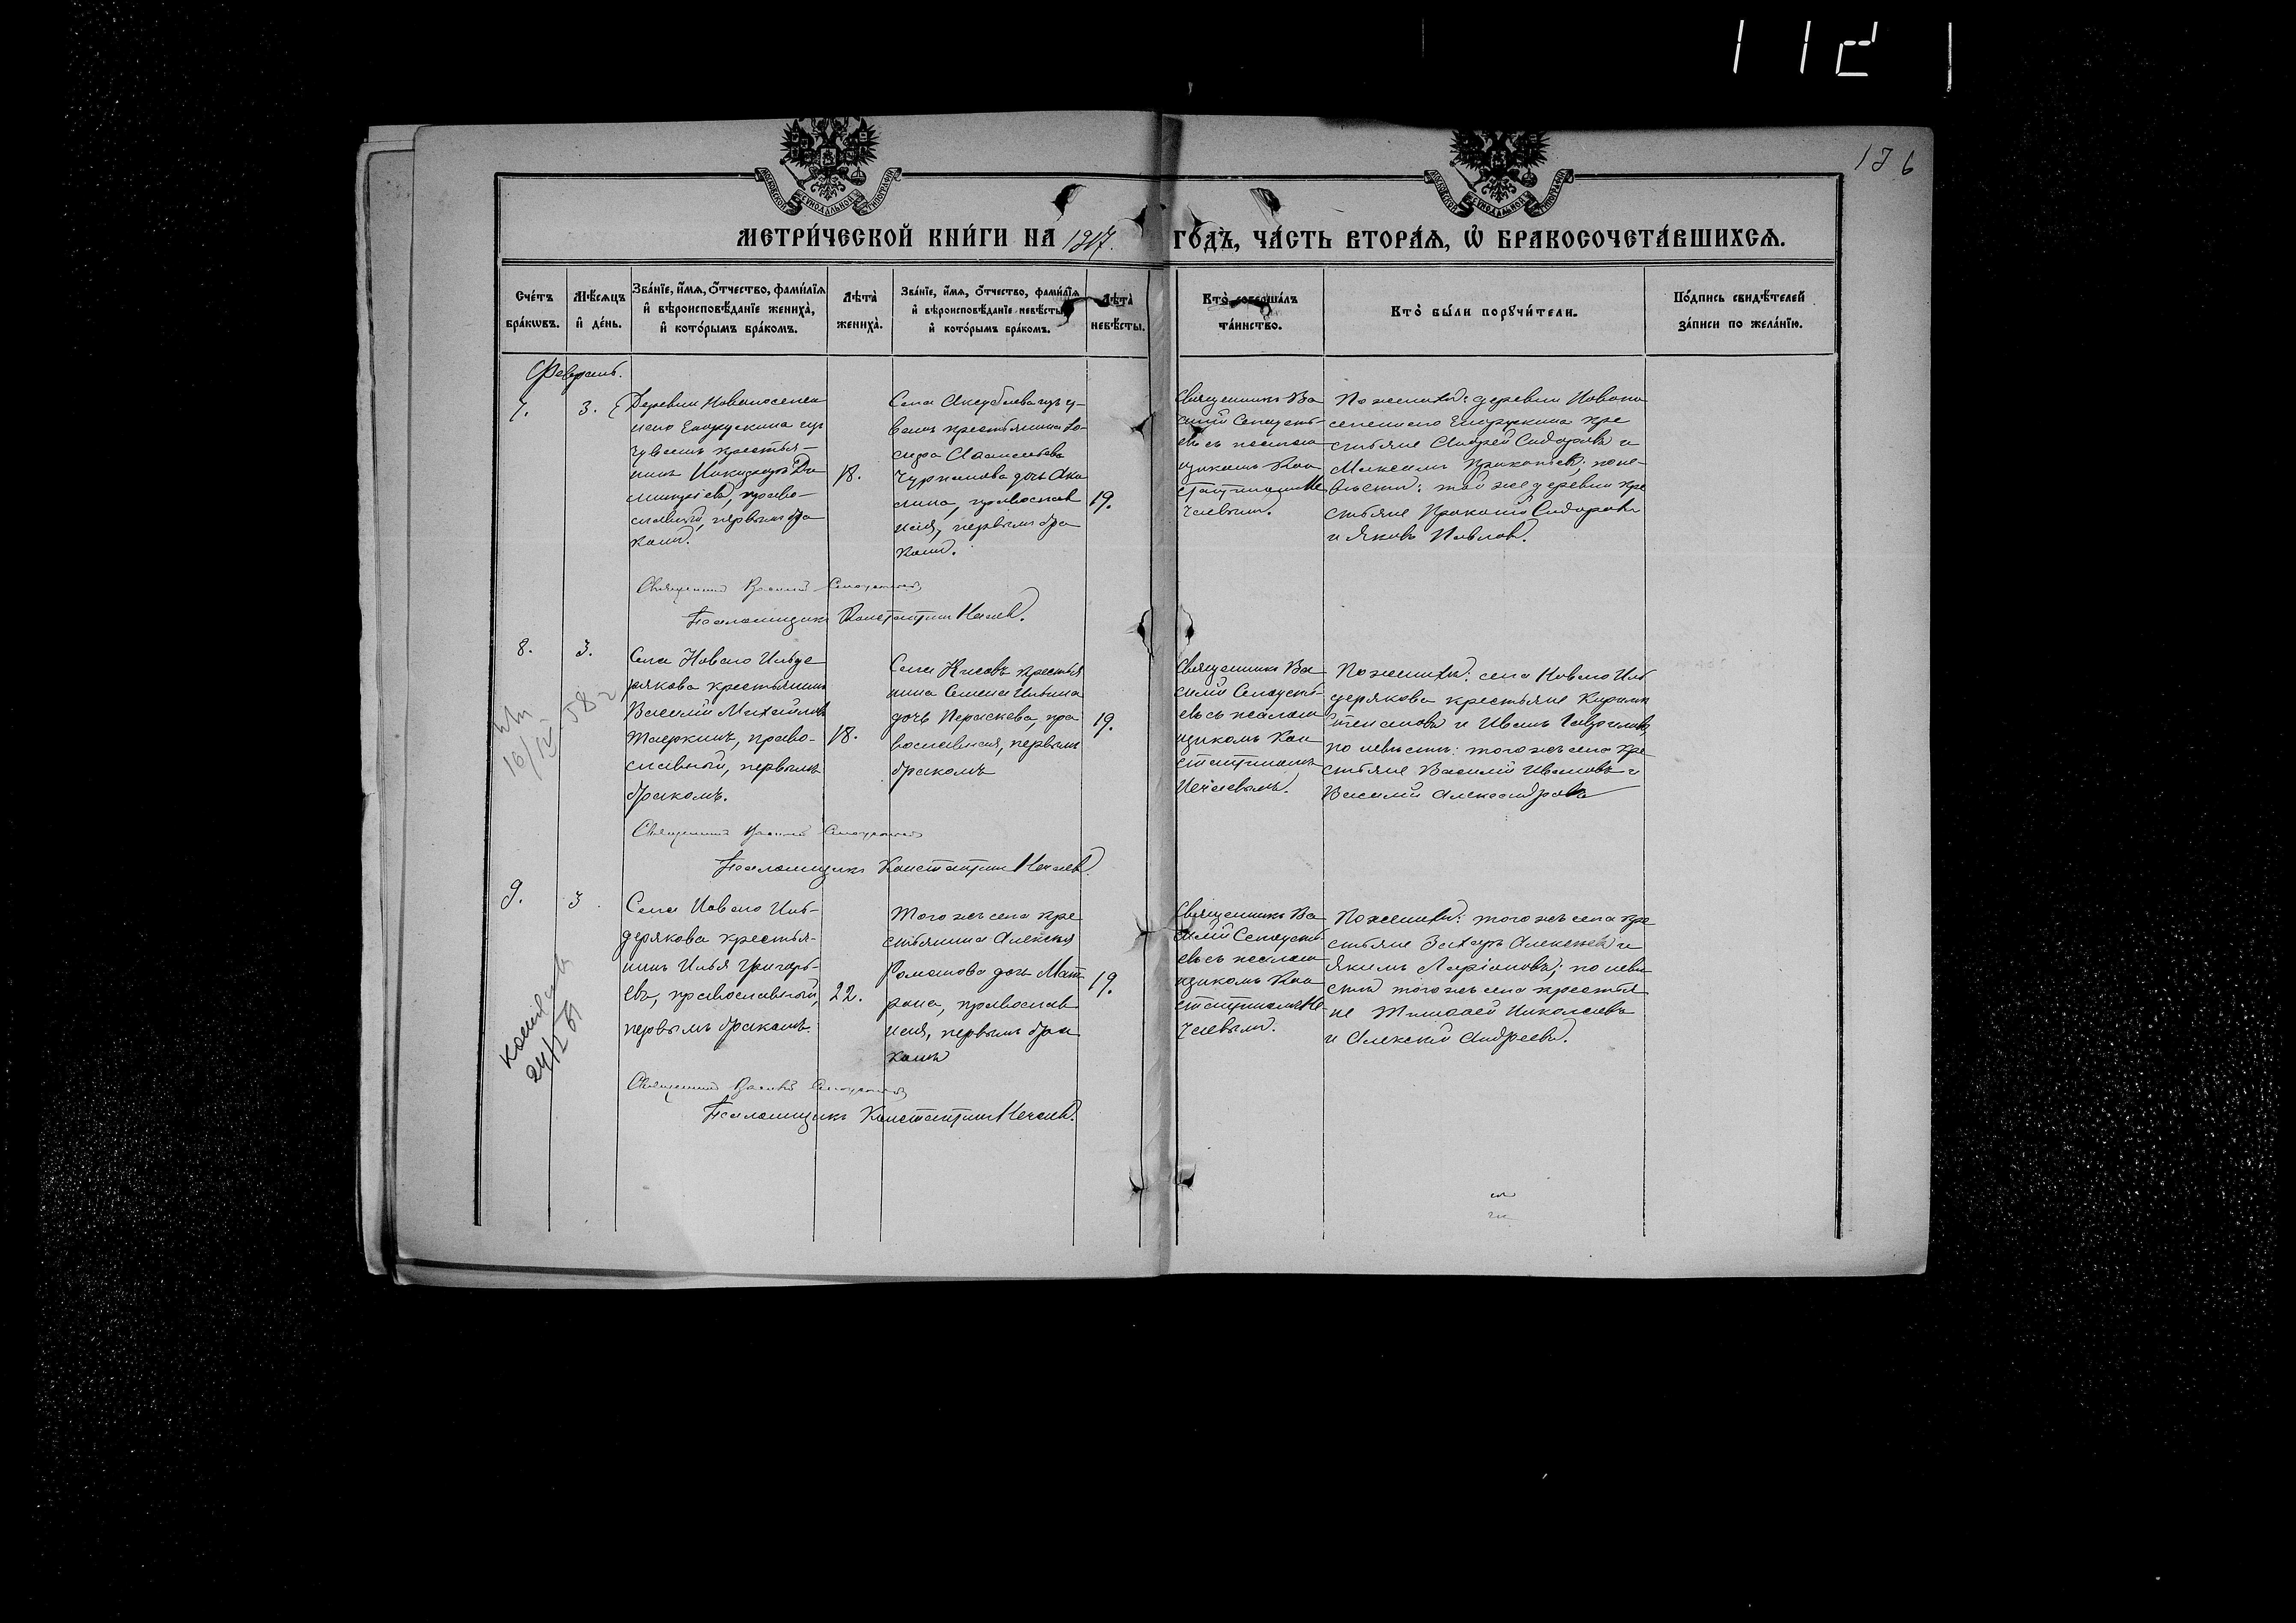 136
МЕТРИ́ЧЕСКОЙ КНИ́ГИ НА 1917. ГО́ДЪ, ЧА́СТЬ ВТОРА́Ѧ, Ѡ҆ БРАКОСОЧЕТА́ВШИХСѦ.
Сче́тъ бра́кѡвъ.
Мѣ́сѧцъ и҆ де́нь.
Зва́нїе, и҆́мѧ, ѻ҆́тчество, фами́лїѧ и҆ вѣроисповѣ́данїе жениха̀, и҆ кото́рымъ бра́комъ.
Лѣта̀ жениха̀.
Зва́нїе, и҆́мѧ, ѻ҆́тчество, фами́лїѧ и҆ вѣроисповѣ́данїе невѣ́сты и҆ кото́рымъ бра́комъ.
Лѣта̀ невѣ́сты.
Кто̀ соверша́лъ та́инство.
Кто̀ бы́ли порꙋчи́тели.
По́дпись свидѣ́телей за́писи по жела́нїю.
Февраль.
7.
3.
Деревни Новопоселен
наго Ендрускина изъ
чувашъ крестья-
нинъ
право-
славный, первымъ бра
комъ.
18.
Села Аксубаева изъ чу-
вашъ крестьянина
дочь Аку
лина, православ
ная, первымъ бра
комъ.
19.
Священникъ Ва
силій
евъ съ псалом
щикомъ Кон
стантиномъ Не
чаевымъ.
По женихѣ: деревни Новопо
селеннаго Ендрускина кре
стьяне Андрей Сидоровъ и
Максимъ Прокопьевъ; по не-
вѣстѣ: той же деревни кре
стьяне Прокопій Сидоровъ
и Яковъ Павловъ.
Священникъ Василій
Псаломщикъ Константинъ Нечаевъ.
8.
3.
Села Новаго Ильде
рякова крестьянинъ
Василій Михайловъ
Таеркинъ, право-
славный, первымъ
бракомъ.
18.
Села Кисовъ крестья
нина Семена Ильина
дочь Параскева, пра
вославная, первымъ
бракомъ
19.
Священникъ Ва
силій
евъ съ псалом
щикомъ Кон
стантиномъ
Нечаевымъ.
По женихѣ: села Новаго Иль
дерякова крестьяне Кириллъ
Степановъ и Иванъ Гавриловъ,
по невѣстѣ: того жъ села кре
стьяне Василій Ивановъ и
Василій Александровъ
Священникъ Василій
Псаломщикъ Константинъ Нечаевъ.
9.
3.
Села Новаго Иль-
дерякова крестья-
нинъ Илья Григорь-
евъ, православный,
первымъ бракомъ.
22.
Того жъ села кре
стьянина Алексѣя
Романова дочь Мат
рона, православ
ная, первымъ бра
комъ
19.
Священникъ Ва
силій
евъ съ псалом
щикомъ Кон
стантиномъ Не
чаевымъ.
По женихѣ: того жъ села кре
стьяне Захаръ Алексѣевъ и
Якимъ Ларіоновъ; по невѣ
стѣ того жъ села крестья
не Тимоѳей Николаевъ
и Алексѣй Андреевъ.
Священникъ Василій
Псаломщикъ Константинъ Нечаевъ.